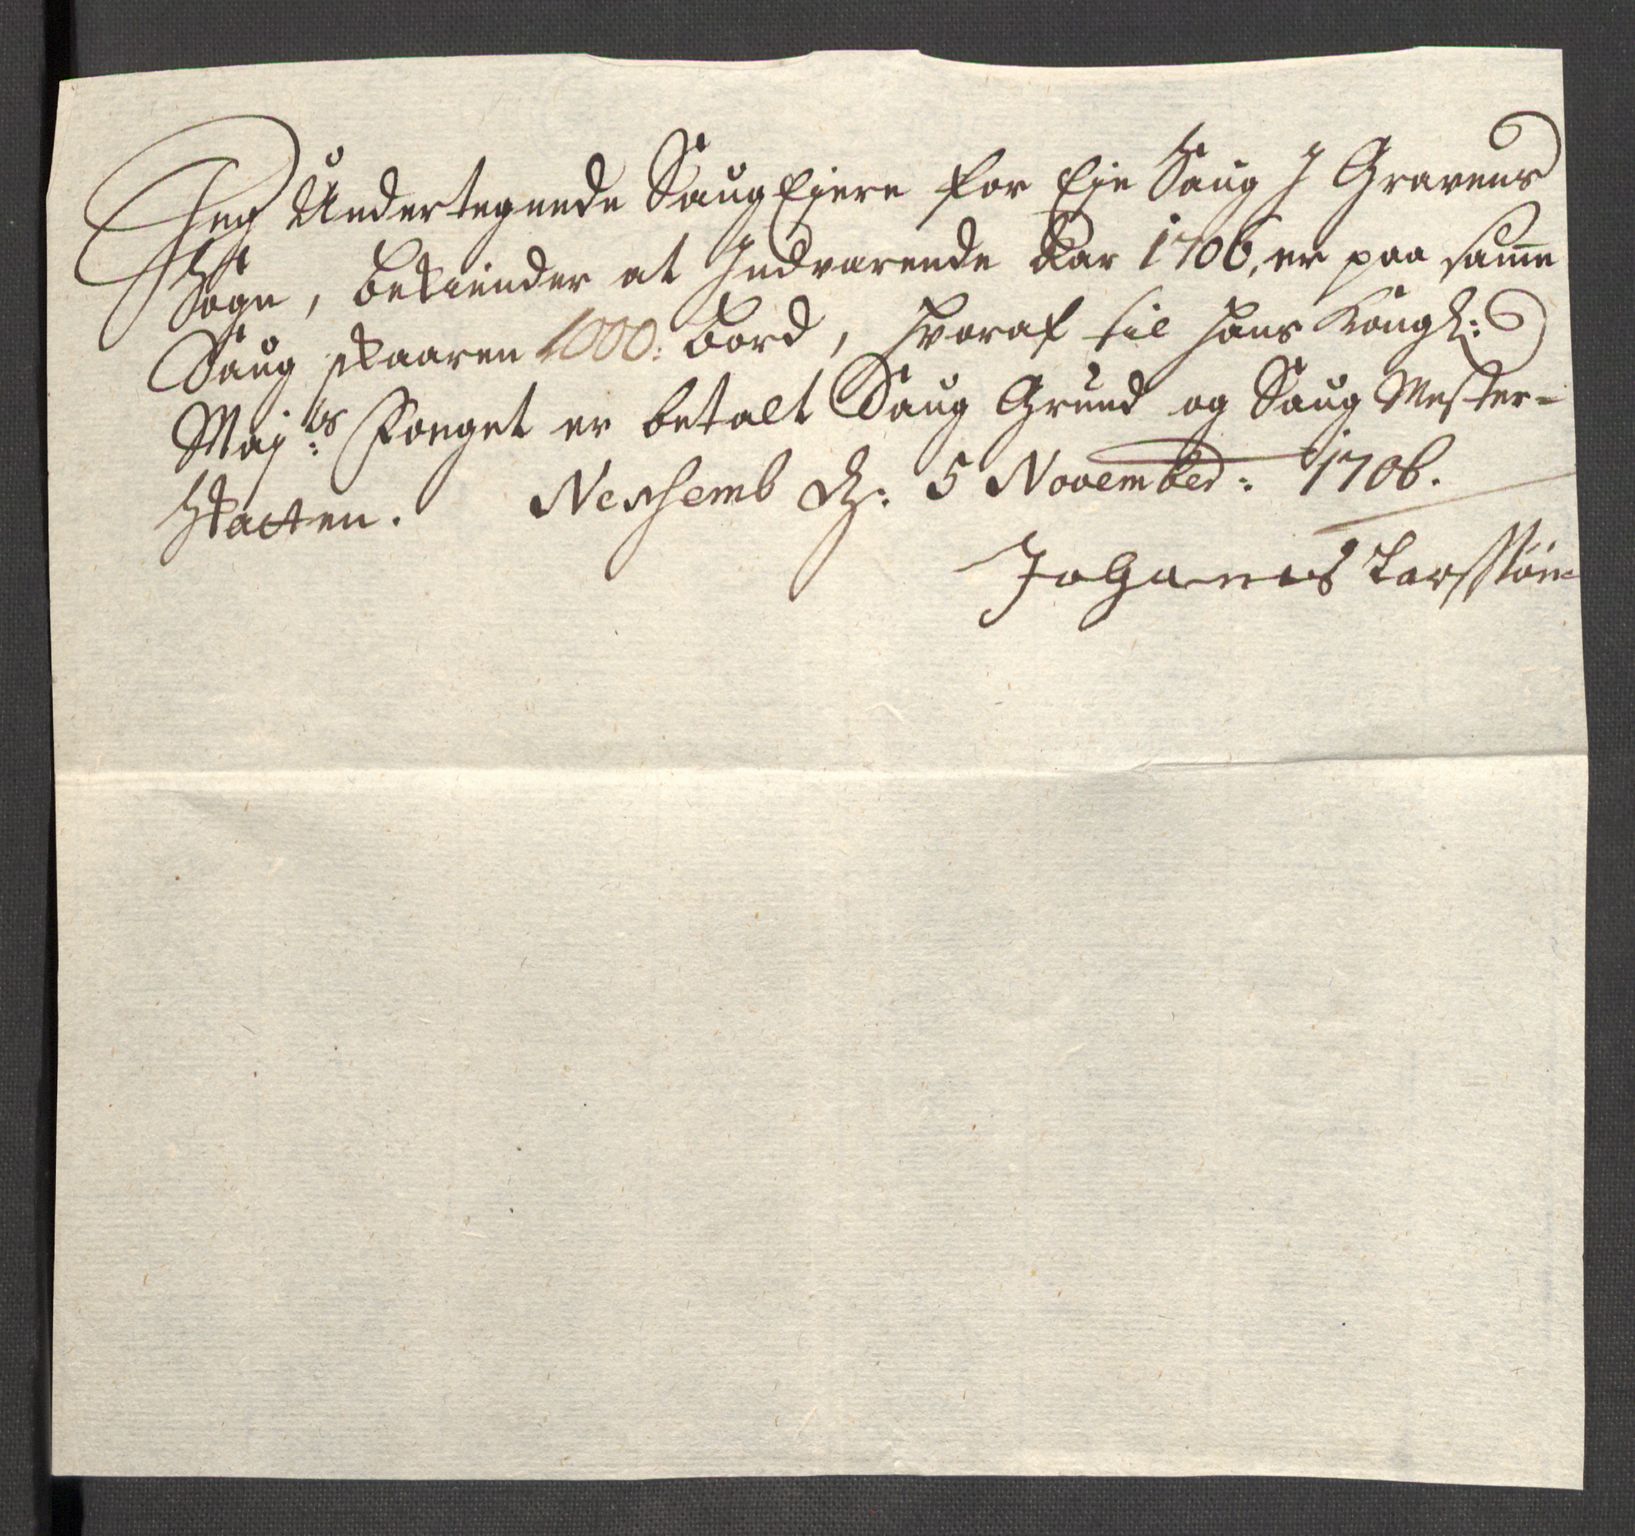 Jeg Undertegnede Saug Ejere for Eje Saug J Gravens
Sogn, bekiender at Indvarende Aar 1706, er paa samme
Saug skaaren 1000: bord, hvoraf til Hans Kongl:
Maj:ts Foeget er betalt Saug Grund og Saug Mester-
Skatten. Nershemb d: 5 November: 1706.
Johanes Larssøn